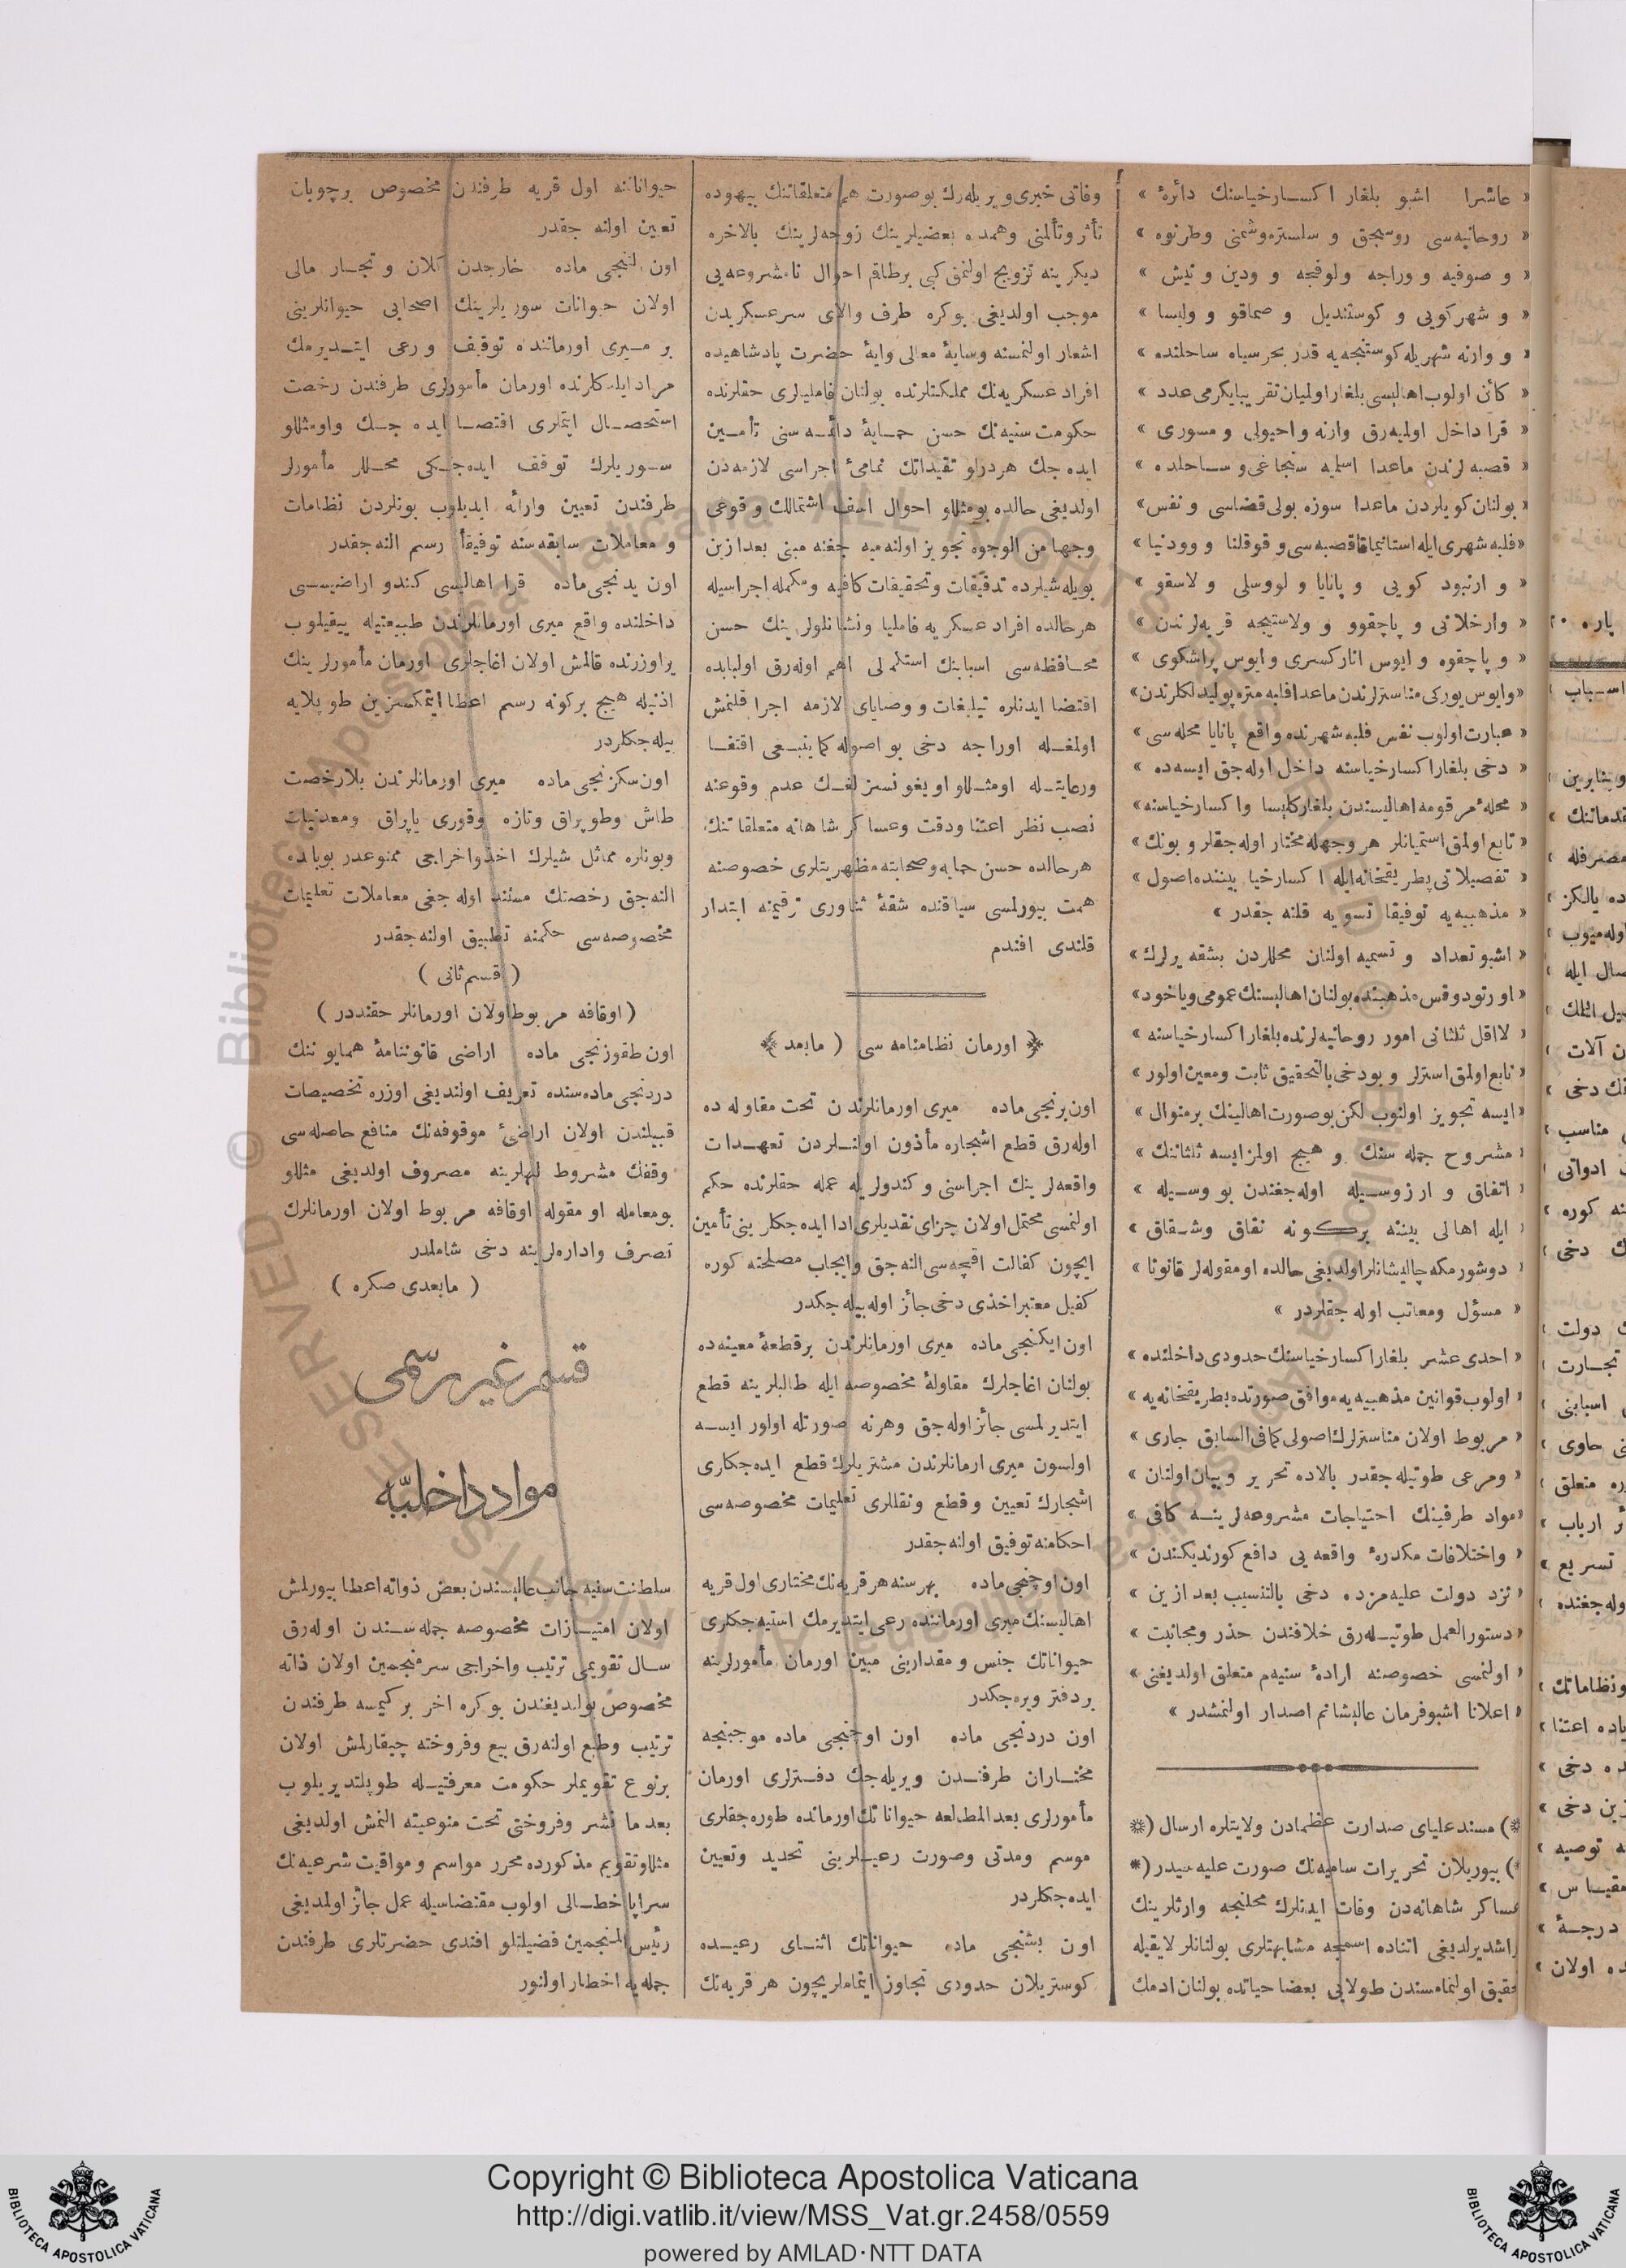 « عاشرا اشبو بلغار اكسارخياسنك دائرهٔ »
« روحانيه‌سى روسجق و سلستره‌وشمنى وطرنوه »
« و صوفيه و وراجه ولوفچه و ودين و نيش »
« و شهركويى و كوستنديل و صماقو و ولسا »
« و وارنه شهريله كوستنجه‌يه قدر بحرسياه ساحلنده »
« كائن اولوب اهاليسى بلغار اولميان تقريبا يكرمى عدد »
« قرا داخل اولميه‌رق وارنه و احيولى و مسورى »
« قصبه‌لرندن ماعدا اسلميه سنجاغى و ساحلده »
« بولنان كويلردن ماعدا سوزه بولى قضاسى و نفس »
« فلبه شهرى ايله استانيماقا قصبه‌سى و قوقلنا و وودنيا »
« و ارنبود كويى و پانايا و لووسلى و لاسقو »
« وارخلانى و پاچقوو و ولاستيجه قريه‌لرندن »
« و پاچقوه و ايوس انار كسرى و ايوس پراشكوى »
« وايوس يوركى مناسترلرندن ماعدا فلبه متره پوليدلكلرندن »
« عبارت اولوب نفس فلبه شهرنده واقع پانايا محله‌سى »
« دخى بلغار اكسارخياسنه داخل اوله‌جق ايسه‌ده »
« محلهٔ مرقومه اهاليسندن بلغار كليسا و اكسارخياسنه »
« تابع اولمق استميانلر هر وجهله مختار اوله‌جقلر و بونك »
« تفصيلاتى پطريقخانه ايله اكسارخيا بيننده اصول »
« مذهبيه‌يه توفيقا تسويه قلنه جقدر »
« اشبو تعداد و تسميه اولنان محللردن بشقه يرلرك »
« اورتودوقس مذهبنده بولنان اهاليسنك عمومى وياخود »
« لااقل ثلثانى امور روحانيه‌لرنده بلغار اكسارخياسنه »
« تابع اولمق استرلر و بودخى بالتحقيق ثابت ومعين اولور »
« ايسه تجويز اولنوب لكن بو صورت اهالينك برمنوال »
« مشروح جمله سنك و هيچ اولمز ايسه ثلثاننك »
« اتفاق و ارزوسيله اوله‌جغندن بو وسيله »
« ايله اهالى بيننه بركونه نفاق وشقاق »
« دوشورمكه چاليشانلر اولديغى حالده اومقوله‌لر قانونا »
« مسؤل ومعاتب اوله جقلردر »
« احدى عشر بلغار اكسارخياسنك حدودى داخلنده »
« اولوب قوانين مذهبيه‌يه موافق صورتده بطريقخانه‌يه »
« مربوط اولان مناسترلرك اصولى كمافى السابق جارى »
« ومرعى طوتيله‌جقدر بالاده تحرير و بيان اولنان »
« مواد طرفينك احتياجات مشروعه‌لرينه كافى »
« واختلافات مكدرهٔ واقعه يى دافع كورنديكندن »
« نزد دولت عليه‌مزده دخى بالتنسيب بعد ازين »
« دستورالعمل طوتيله‌رق خلافندن حذر ومجانبت »
« اولنمسى خصوصنه ارادهٔ سنيه‌م متعلق اولديغنى »
« اعلانا اشبو فرمان عاليشانم اصدار اولنمشدر »
(* مسند علياى صدارت عظمادن ولايتلره ارسال *)
(* بيوريلان تحريرات ساميه‌نك صورت عليه سيدر *)
عساكر شاهانه‌دن وفات ايدنلرك محلنجه وارثلرينك
اراشديرلديغى اثناده اسمجه مشابهتلرى بولنانلر لايقيله
تحقيق اولنمامسندن طولايى بعضا حياتده بولنان ادمك
وفاتى خبرى ويريله‌رك بوصورت هم متعلقاتنك بيهوده
تأثر و تألمنى وهمده بعضيلرينك زوجه‌لرينك بالاخره
ديكرينه تزويج اولنمق كبى برطاقم احوال نامشروعه‌يى
موجب اولديغى بوكره طرف والاى سرعسكريدن
اشعار اولنمسنه وسايهٔ معالى وايهٔ حضرت پادشاهيده
افراد عسكريه‌نك مملكتلرنده بولنان فاميليالرى حقلرنده
حكومت سنيه‌نك حسن حمايهٔ دائمه سنى تأمين
ايده جك هردرلو تقيداتك تمامئ اجراسى لازمه‌دن
اولديغى حالده بومثللو احوال اسف اشتمالك وقوعى
وجها من الوجوه تجويز اولنه‌ميه جغنه مبنى بعد ازين
بويله شيلرده تدقيقات وتحقيقات كافيه ومكمله اجراسيله
هرحالده افراد عسكريه فاميليا ونشانلولرينك حسن
محافظه‌سى اسبابنك استكمالى اهم اوله‌رق اولبابده
اقتضا ايدنلره تبليغات و وصاياى لازمه اجرا قلنمش
اولمغله اوراجه دخى بو اصوله كما ينبغى اقتفا
ورعايتله اومثللو اويغونسزلغك عدم وقوعنه
نصب نظر اعتنا ودقت وعساكر شاهانه متعلقاتنك
هرحالده حسن حمايه وصحابته مظهريتلرى خصوصنه
همت بيورلمسى سياقنده شقهٔ ثناورى ترقيمنه ابتدار
قلندى افندم
﴿ اورمان نظامنامه سى ( مابعد ﴾
اون برنجى ماده ميرى اورمانلرندن تحت مقاوله ده
اوله‌رق قطع اشجاره مأذون اولنلردن تعهدات
واقعه‌لرينك اجراسنى و كندولريله عمله حقلرنده حكم
اولنمسى محتمل اولان جزاى نقديلرى ادا ايده جكلرينى تأمين
ايچون كفالت اقچه‌سى النه‌جق وايجاب مصلحته كوره
كفيل معتبر اخذى دخى جائز اوله بيله جكدر
اون ايكنجى ماده ميرى اورمانلرندن برقطعهٔ معينه‌ده
بولنان اغاجلرك مقاولهٔ مخصوصه ايله طالبلرينه قطع
ايتديرلمسى جائز اوله‌جق وهرنه صورتله اولور ايسه
اولسون ميرى ارمانلرندن مشتريلرك قطع ايده‌جكلرى
اشجارك تعيين و قطع ونقللرى تعليمات مخصوصه‌سى
احكامنه توفيق اولنه‌جقدر
اون اوچنجى ماده بهر سنه هر قريه‌نك مختارى اول قريه
اهاليسنك ميرى اورماننده رعى ايتديرمك استيه‌جكلرى
حيواناتك جنس و مقدارينى مبين اورمان مأمورلرينه
بر دفتر ويره‌جكدر
اون دردنجى ماده اون اوچنجى ماده موجبنجه
مختاران طرفندن ويريله‌جك دفترلرى اورمان
مأمورلرى بعدالمطالعه حيواناتك اورمانده طوره‌جقلرى
موسم ومدتى وصورت رعيلرينى تحديد وتعيين
ايده‌جكلردر
اون بشنجى ماده حيواناتك اثناى رعيده
كوستريلان حدودى تجاوز ايتماملريچون هر قريه‌نك
حيواناتنه اول قريه طرفندن مخصوص برچوبان
تعيين اولنه جقدر
اون التنجى ماده خارجدن كلان و تجار مالى
اولان حيوانات سوريلرينك اصحابى حيوانلرينى
بر ميرى اورماننده توقيف و رعى ايتديرمك
مراد ايلدكلرنده اورمان مأمورلرى طرفندن رخصت
استحصال ايتملرى اقتضا ايده جك واومثللو
سوريلرك توقف ايده‌جكى محللر مأمورلر
طرفندن تعيين وارائه ايديلوب بونلردن نظامات
و معاملات سابقه‌سنه توفيقاً رسم النه‌جقدر
اون يدنجى ماده قرا اهاليسى كندو اراضيسى
داخلنده واقع ميرى اورمانلرندن طبيعتيله ييقيلوب
ير اوزرنده قالمش اولان اغاجلرى اورمان مأمورلرينك
اذنيله هيچ بركونه رسم اعطا ايتمكسزين طوپلايه
بيله جكلردر
اون سكزنجى ماده ميرى اورمانلرندن بلارخصت
طاش وطوپراق وتازه وقورى ياپراق ومعدنيات
وبونلره مماثل شيلرك اخذ واخراجى ممنوعدر بوبابده
النه‌جق رخصتك مستند اوله جغى معاملات تعليمات
مخصوصه‌سى حكمنه تطبيق اولنه‌جقدر
( قسم ثانى )
( اوقافه مربوط اولان اورمانلر حقنده‌در )
اون طقوزنجى ماده اراضى قانوننامهٔ همايوننك
دردنجى ماده‌سنده تعريف اولنديغى اوزره تخصيصات
قبيلندن اولان اراضئ موقوفه‌نك منافع حاصله‌سى
وقفك مشروط لهلرينه مصروف اولديغى مثللو
بومعامله او مقوله اوقافه مربوط اولان اورمانلرك
تصرف واداره‌لرينه دخى شاملدر
( مابعدى صكره )
قسم غير رسمى
مواد داخليّه
سلطنت سنيه جانب عاليسندن بعض ذواته اعطا بيورلمش
اولان امتيازات مخصوصه جمله‌سندن اوله‌رق
سال تقويمى ترتيب واخراجى سرمنجمين اولان ذاته
مخصوص بولنديغندن بوكره اخر بركيمسه طرفندن
ترتيب وطبع اولنه‌رق بيع وفروخته چيقارلمش اولان
برنوع تقويملر حكومت معرفتيله طوپلتديريلوب
بعد ما نشر وفروختى تحت ممنوعيته النمش اولديغى
مثللو تقويم مذكورده محرر مواسم و مواقيت شرعيه‌نك
سراپا خطالى اولوب مقتضاسيله عمل جائز اولمديغى
رئيس المنجمين فضيلتلو افندى حضرتلرى طرفندن
جمله‌يه اخطار اولنور
پاره ٢٠
اسباب
وبنابرين
مصرفله
ده يالكز
اوله‌ميوب
ن آلات
نك دخى
مناسب
ادواتى
نه كوره
ك دخى
دولت
تجارت
اسبابنى
نى حاوى
ره متعلق
ارباب
تسريع
وله جغنده
ونظاماتك
ياده اعتنا
ده دخى
زين دخى
ه توصيه
مقياس
درجهٔ
ده اولان
© Biblioteca Apostolica Vaticana ALL RIGHTS RESERVED
Copyright © Biblioteca Apostolica Vaticana
http://digi.vatlib.it/view/MSS_Vat.gr.2458/0559
powered by AMLAD·NTT DATA
BIBLIOTECA APOSTOLICA VATICANA
BIBLIOTECA APOSTOLICA VATICANA